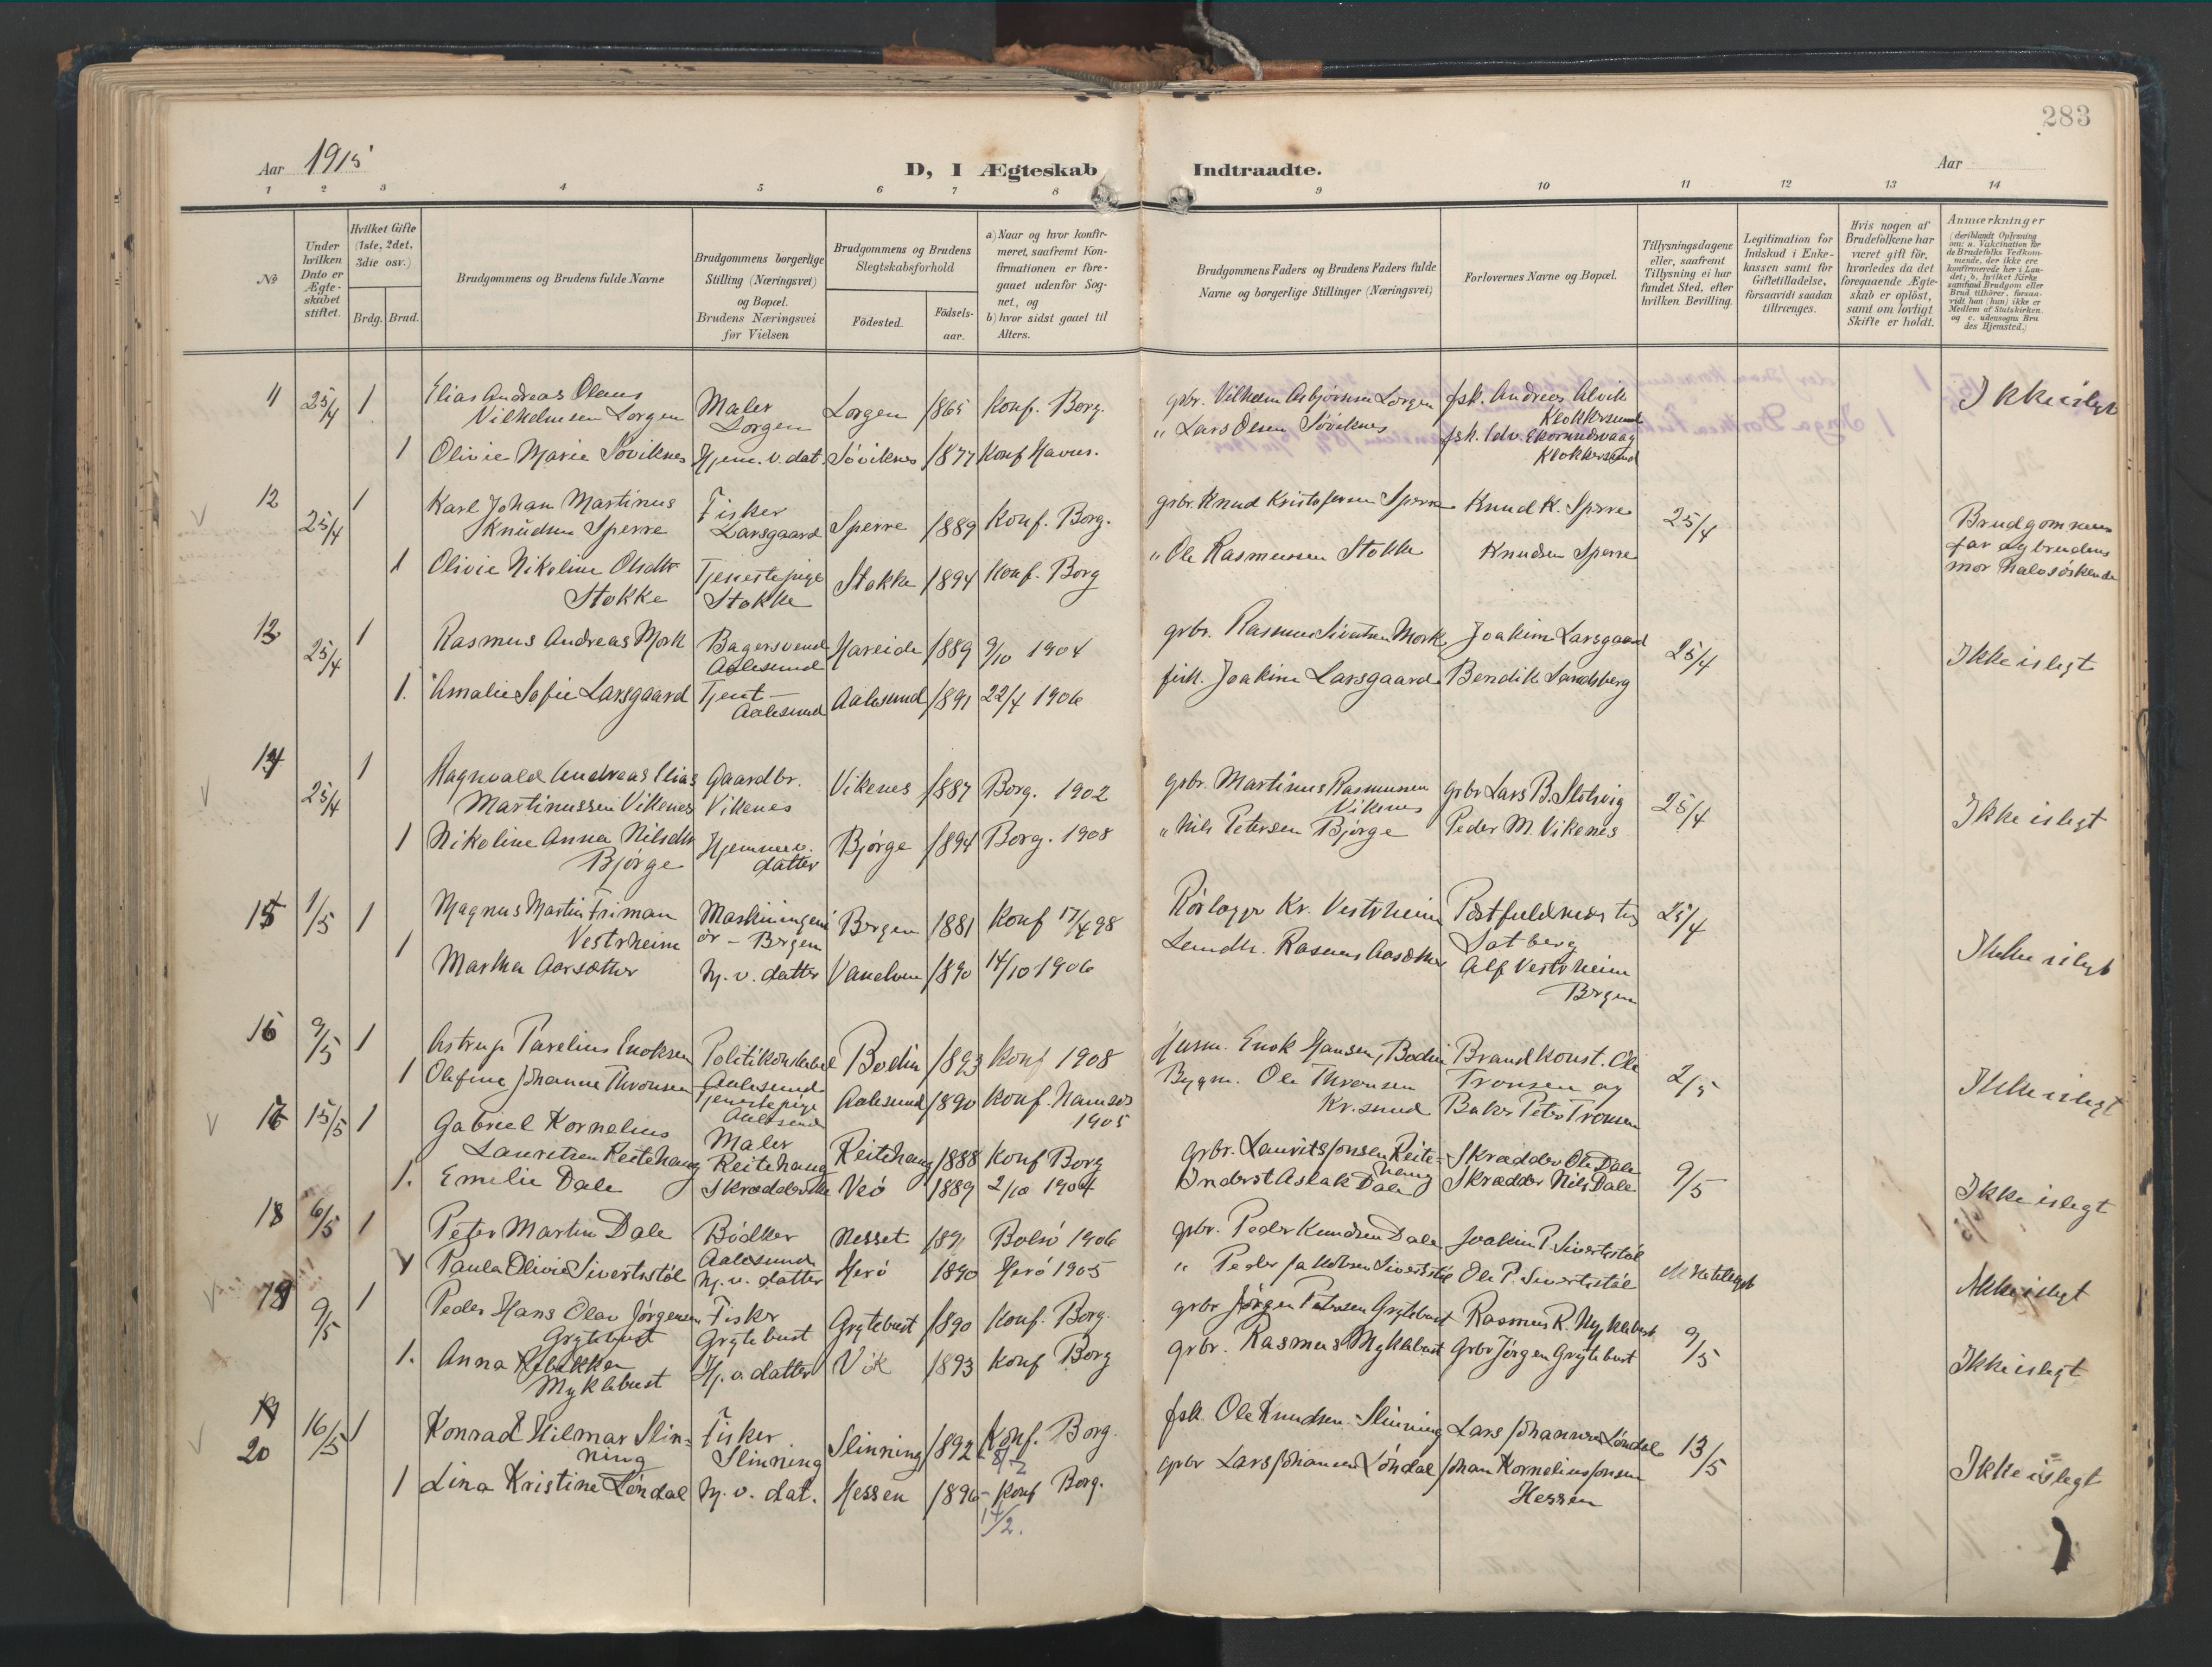 283
Aar 1915
D, I Ægteskab Indtraadte.
Aar
1 2 3 4 5 6 7 8 9 10 11 12 13 14
No
Under hvilken Dato er Ægte-skabet stiftet.
Hvilket Gifte (1ste, 2det, 3die osv.)
Brdg. Brud.
Brudgommens og Brudens fulde Navne
Brudgommens borgerlige Stilling (Næringsvei) og Bopæl. Brudens Næringsvei før Vielsen
Brudgommens og Brudens Slegtskabsforhold
Fødested. Fødsels-aar.
a) Naar og hvor konfir-meret, saafremt Kon-firmationen er fore-gaaet udenfor Sog-net, og
b) hvor sidst gaaet til Alters.
Brudgommens Faders og Brudens Faders fulde Navne og borgerlige Stillinger (Næringsvei)
Forlovernes Navne og Bopæl.
Tillysningsdagene eller, saafremt Tillysning ei har fundet Sted, efter hvilken Bevilling.
Legitimation for Indskud i Enke-kassen samt for Giftetilladelse, forsaavidt saadan tiltrænges.
Hvis nogen af Brudefolkene har været gift før, hvorledes da det foregaaende Ægte-skab er opløst, samt om lovligt Skifte er holdt.
Anmærkninger (deriblandt Oplysning om: a. Vakcination for de Brudefolks Vedkom-mende, der ikke ere konfirmerede her i Lan-det; b. hvilket Kirke samfund Brudgom eller Brud tilhører, forsaa-vidt han (hun) ikke er Medlem af Statskirken. og c. udensogns Bru des Hjemsted.)
11 25/4 1 Elias Andreas Olaus Maler Lorgen 1865 Konf. Borg. gbr. Vilhelm Asbjørnsen Lorgen fsk. Andreas Alvik Ikke i slegt
Vilhelmsen Lorgen Lorgen Klokkersund
1 Olivie Marie Søviknes Hjem. v. dat. Søviknes 1877 Konf Havns. " Lars Olsen Søviknes fsk. Edv. Ekornesvaag
Klokkersund
12 25/4 1 Karl Johan Martinus Fisker Sperre 1889 Konf. Borg. grbr. Knud Kristofersen Sperre Knud K. Sperre 25/4 Brudgommens
Knudsen Sperre Larsgaard far og brudens
1 Olivie Nikoline Olsdtr Tjenestepige Stokke 1894 Konf. Borg " Ole Rasmussen Stokke Knudsen Sperre mor halvsöskende
Stokke Stokke
13 25/4 1 Rasmus Andreas Mork Bagersvend Hareide 1889 9/10 1904 grbr. Rasmus Sivertsen Mork Joakim Larsgaard 25/4 Ikke i slegt
Aalesund
1. Amalie Sofie Larsgaard Tjent - Aalesund 1891 22/4 1906 fisk. Joakim Larsgaard Bendik Sandsberg
Aalesund
14 25/4 1 Ragnvald Andreas Elias Gaardbr. Vikenes 1887 Borg. 1902 grbr. Martinus Rasmussen grbr Lars B. Slotsvig 25/4 Ikke i slegt
Martinussen Vikenes Vikenes Vikenes
1 Nikoline Anna Nilsdtr Hjemmev. Bjørge 1894 Borg. 1908 " Nils Petersen Bjørge Peder M. Vikenes
Bjørge datter
15 1/5 1 Magnus Martin Friman Maskiningeni Bergen 1881 Konf 17/4 98 Rørlægger Kr. Vestrheim 25/4 Ikke i slegt
Vestrheim ör - Bergen
1 Martha Aarsæther hj. v. datter Vanelven 1890 14/10 1906 Lendm. Rasmus Aarsæther Alf Vestrheim
Bergen
16 9/5 1 Astrup Parelius Enoksen Politikonstabel Bodin 1893 Konf 1908 Husm. Enok Hansen, Bodin Brandkonst. Ole 2/5 Ikke i slegt
Aalesund
1 Olefine Johanne Thronsen Tjenestepige Aalesund 1890 Konf. Namsos Bygm. Ole Thronsen Tronsen og
Aalesund 1905 Kr. sund Baker Peter Tronsen
17 15/5 1 Gabriel Kornelius Maler Reitehaug 1888 Konf Borg grbr. Laurits Jonsen Reite- Skrædder Ole Dale 9/5 Ikke i slegt
Lauritsen Reitehaug Reitehaug haug
1. Emelie Dale Skrædderske Veö 1889 2/10 1904 Inderst Aslak Dale Skrædder Nils Dale
18 6/5 1 Peter Martin Dale Bödker Nesset 1891 Bolsö 1906 gbr. Peder Knudsen Dale Joakim P. Sivertstöl Ikke i slegt
Aalesund
1 Paula Olivie Sivertsstöl hj. v. datter Herö 1890 Herö 1905 " Peder Jakobsen Sivertstöl Ole P. Sivertstöl
19 9/5 1 Peder Hans Olav Jørgensen Fisker Grytebust 1890 Konf. Borg. grbr Jørgen Petersen Grytebust Rasmus R. Myklebust 9/5 Ikke i slegt
Grytebust Grytebust
1. Anna Rebekka Hj. v. datter Vik 1893 Konf Borg grbr. Rasmus Myklebust Grbr Jørgen Grytebust
Myklebust
20 16/5 1 Konrad Hilmar Slin- Fisker Slinning 1892 Konf. Borg. fsk. Ole Knudsen Slinning Lars Johannesen Løndal 13/5 Ikke i slegt
ning Slinning 8/2
1 Lina Kristine Løndal hj. v. dat. Hessen 1896 Konf Borg. grbr Lars Johansen Löndal Johan Kornelius Jonsen
14/2. Hessen